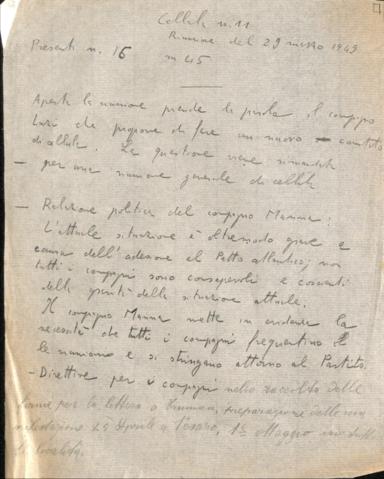 Cellula n. 11
Riunione del 29 marzo 1949
Presenti n. 16
su 45
Aperta la riunione prende la parola il compagno
che propone di fare un nuovo comitato
di cellula. La questione viene rimandata
— per una riunione generale di cellula
— Relazione politica del compagno Manna:
L'attuale situazione è oltremodo grave e
causa dell'adesione al Patto atlantico; non
tutti i compagni sono consapevoli e coscienti
della gravità della situazione attuale.
Il compagno Manna mette in evidenza la
necessità che tutti i compagni frequentino
le riunioni e si stringano attorno al Partito.
— Direttive per i compagni nella raccolta delle
firme per la lettera a Truman, preparazione della
25 Aprile a Pesaro, 1º Maggio
località.